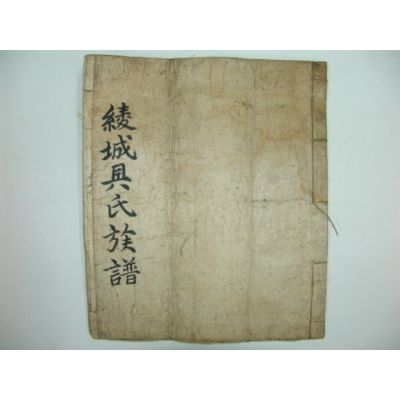 綾城具氏族譜